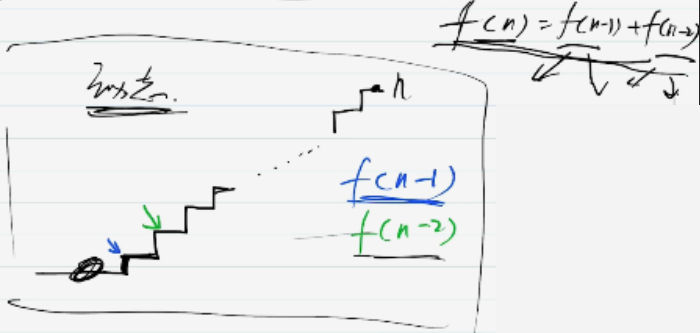 f(n) = f(n-1) + f(n-2)
n
f(n-1)
f(n-2)